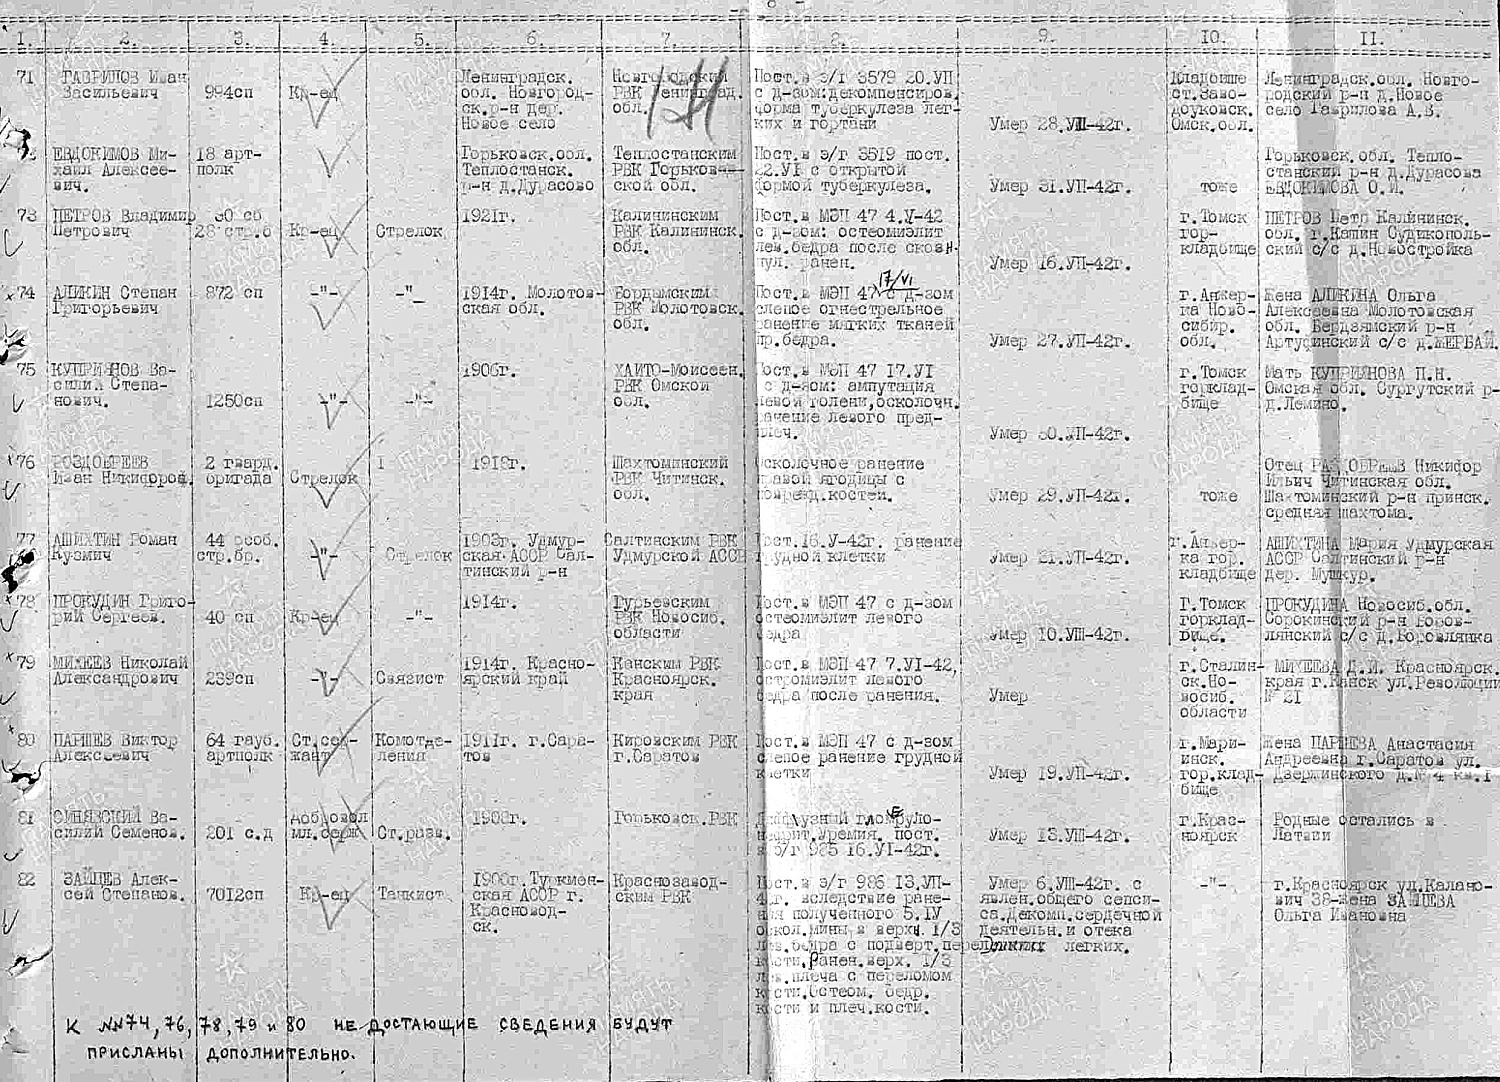 - 8 -
1. 2. 3. 4. 5. 6. 7. 8. 9. 10. 11.
71 ГАВРИЛОВ Иван Васильевич 994сп Кр-ец Ленинградск. обл. Новгород-ск.р-н дер. Новое село Новгородский РВК Ленинград. обл. Пост. в э/г 3579 20.УП с д-зом:декомпенсиров. форма туберкулеза лег-ких и гортани Умер 28.УШ-42г. Кладбище ст.Заво-доуковск. Омск.обл. Ленинградск.обл. Новго-родский р-н д.Новое село Гаврилова А.В.
ЕВДОКИМОВ Ми-хаил Алексее-вич. 18 арт-полк Горьковск.обл. Теплостанск. р-н д.Дурасово Теплостанским РВК Горьков-ской обл. Пост.в э/г 3519 пост. 22.УI с открытой формой туберкулеза. Умер 31.УП-42г. тоже Горьковск.обл. Тепло-станский р-н д.Дурасова ЕВДОКИМОВА О.И.
73 ПЕТРОВ Владимир Петрович 30 сб 28 стр.б Кр-ец Стрелок 1921г. Калининским РВК Калининск. обл. Пост.в МЭП 47 4.У-42 с д-зом: остеомиэлит лев.бедра после сквзн. пул. ранен. Умер 16.УП-42г. г.Томск гор-кладбище ПЕТРОВ Петр Калининск. обл. г.Кашин Судикополь-ский с/с д.Новостройка
74 АЛИКИН Степан Григорьевич 872 сп -"- -"- 1914г. Молотов-ская обл. Бордымским РВК Молотовск. обл. Пост.в МЭП 47 17/VI с д-зом слепое огнестрельное ранение мягких тканей пр.бедра. Умер 27.УП-42г. г.Анжер-ка Ново-сибир. обл. Жена АЛИКИНА Ольга Алексеевна Молотовская обл. Бердзямский р-н Артуринский с/с д.ЖЕРБАЙ.
75 КУПРИЯНОВ Ва-силий Степа-нович. 1250сп -"- -"- 1906г. ХАНТО-Моисеен. РВК Омской обл. Пост.в МЭП 47 17.УI с д-зом: ампутация левой голени,осколочн. ранение левого пред-плеч. Умер 30.УП-42г. г.Томск горклад-бище Мать КУПРИЯНОВА П.Н. Омская обл. Сургутский р- д.Лемино.
76 РОЗДОБРЕЕВ Иван Никифоров. 2 гвард. бригада Стрелок I 1918г. Шахтоминский РВК Читинск. обл. Осколочное ранение правой ягодицы с повреж.костей. Умер 29.УП-42г. тоже Отец РАЗДОБРЕЕВ Никифор Ильич Читинская обл. Шахтоминский р-н прииск. средняя шахтома.
77 АШИХТИН Роман Кузмич 44 особ. стр.бр. -"- Стрелок 1903г. Удмур-ская АССР Сал-тинский р-н Салтинским РВК Удмурской АССР Пост.16.У-42г. ранение грудной клетки Умер 21.УП-42г. г.Анжер-ка гор. кладбище АШИХТИНА Мария Удмурская АССР Салтинский р-н дер. Мушкур.
78 ПРОКУДИН Григо-рий Сергеев. 40 сп Кр-ец -"- 1914г. Гурьевским РВК Новосиб. области Пост.в МЭП 47 с д-зом остеомиэлит левого бедра Умер 10.УШ-42г. Г.Томск горклад-бище. ПРОКУДИНА Новосиб.обл. Сорокинский р-н Боров-лянский с/с д.Боровлянка
79 МИХЕЕВ Николай Александрович 239сп -"- Связист 1914г. Красно-ярский край Канским РВК Красноярск. края Пост.в МЭП 47 7.УI-42, остромиэлит левого бедра после ранения. Умер г.Сталин-ск.Но-восиб. области МИХЕЕВА Д.И. Красноярск. края г.Канск ул.Революции № 21
80 ПАРШЕВ Виктор Алексеевич 64 гауб. артполк Ст.сер-жант Комотде-ления 1911г. г.Сара-тов Кировским РВК г.Саратов Пост.в МЭП 47 с д-зом слепое ранение грудной клетки Умер 19.УП-42г. г.Мари-инск. гор.клад-бище Жена ПАРШЕВА Анастасия Андреевна г.Саратов ул. Дзержинского д.№ 4 кв.1
81 СИНЯВСКИЙ Ва-силий Семенов. 201 с.д Доброво л мл.серж Ст.разв. 1908г. Горьковск.РВК Диффузный гломеруло-нефрит.уремия. пост. в э/г 985 16.УI-42г. Умер 13.УШ-42г. г.Крас-ноярск Родные остались в Латвии
82 ЗАЙЦЕВ Алек-сей Степанов. 7012сп Кр-ец Танкист 1906г.Туркмен-ская АССР г. Красновод-ск. Краснозавод-ским РВК Пост.в э/г 986 13.УП-42г. вследствие ране-ния полученного 5.IУ оскол.мины в верхн. 1/3 лев.бедра с подверт.перел кости.Ранен.верх. 1/3 лев.плеча с переломом кости.Остеом. бедр. кости и плеч.кости. Умер 6.УШ-42г. с явлен.общего сепси-са.Декомп.сердечной деятельн.и отека легких. -"- г.Красноярск ул.Калано-вич 38-жена ЗАЙЦЕВА Ольга Ивановна
К №№74, 76, 78, 79 и 80 НЕДОСТАЮЩИЕ СВЕДЕНИЯ БУДУТ
ПРИСЛАНЫ ДОПОЛНИТЕЛЬНО.